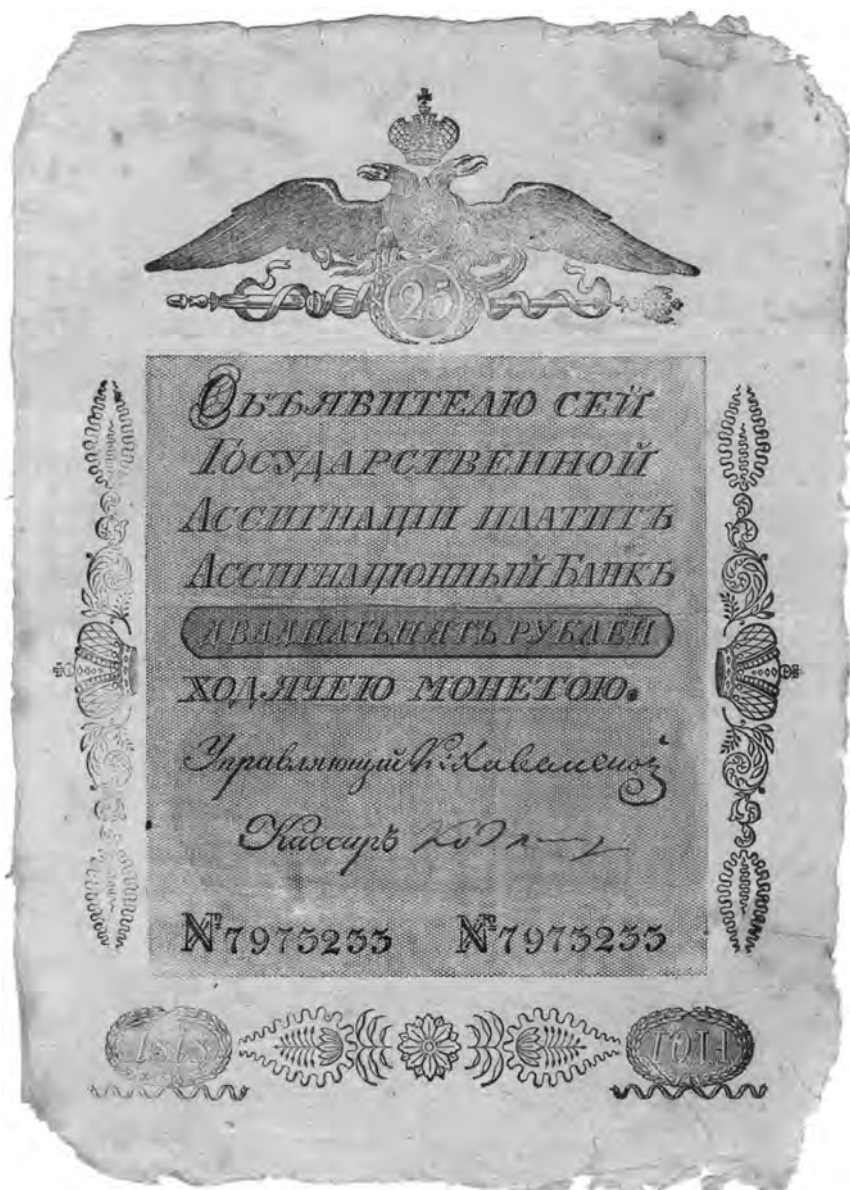 25
Объявителю сей
Государственной
Ассигнаціи платитъ
Ассигнаціонный Банкъ
двадцать пять рублей
ходячею монетою.
Управляющій
Кассиръ
№ 7973233 № 7973233
1818 года